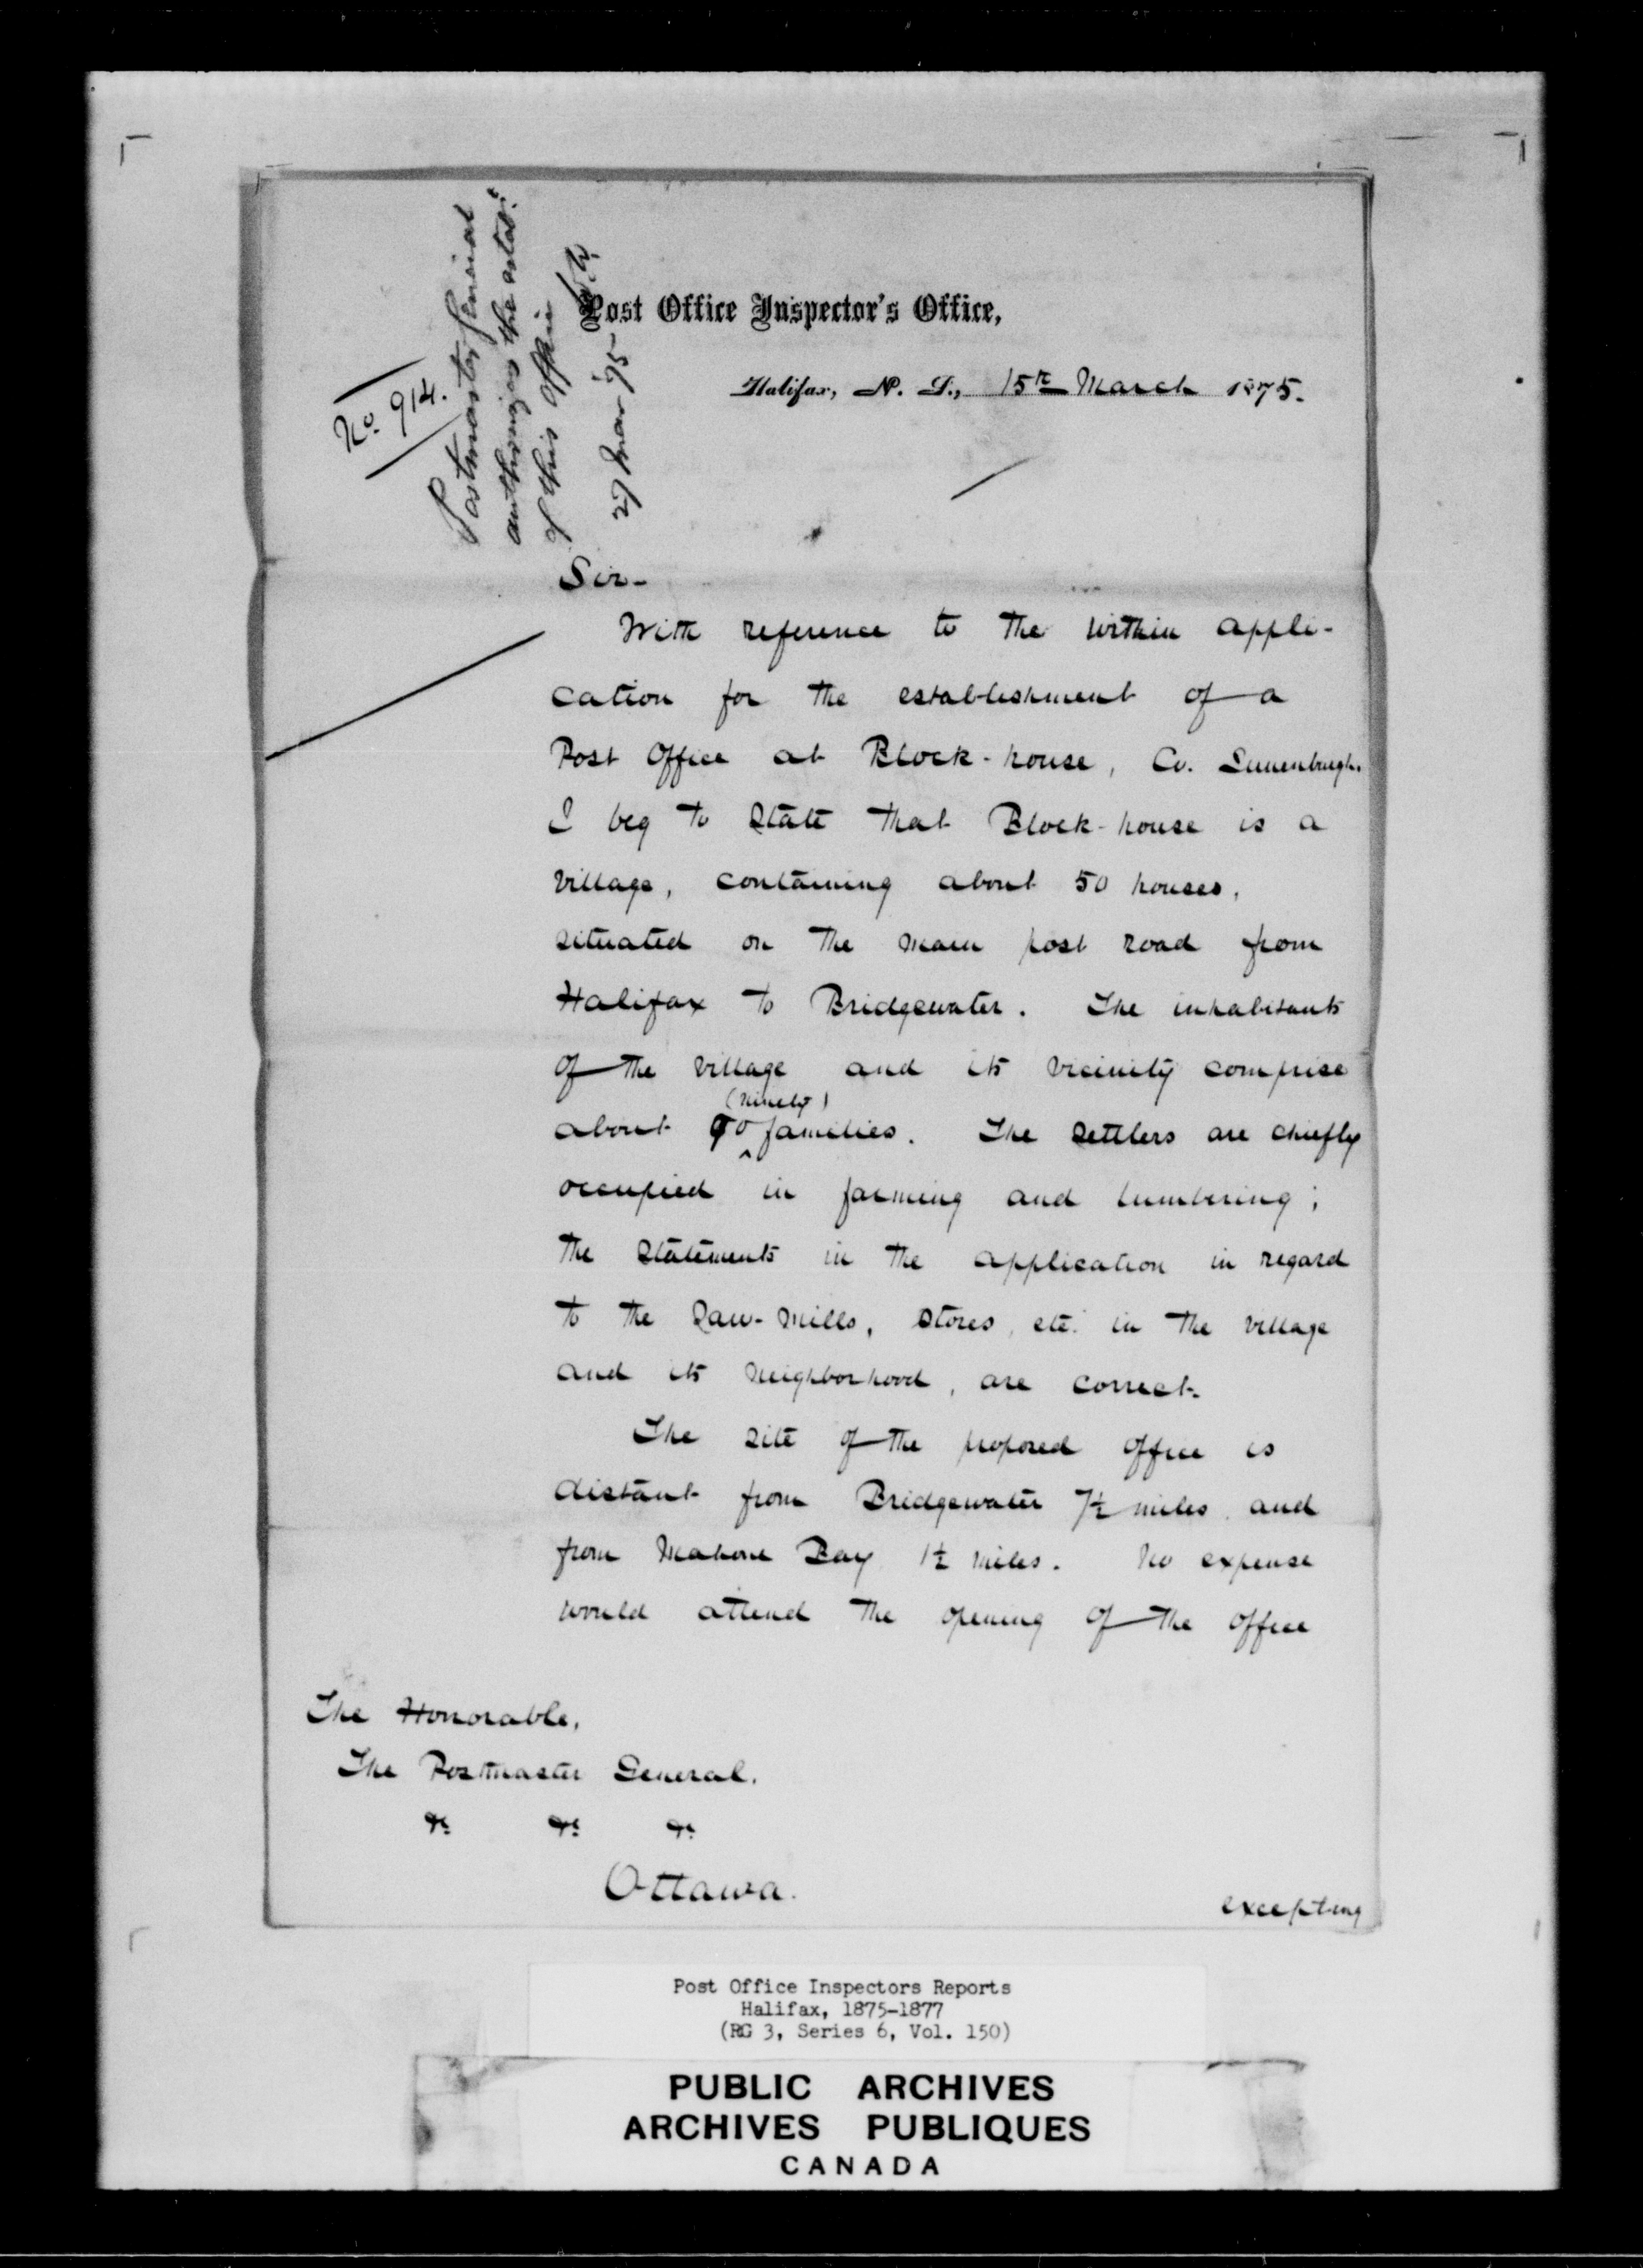 No. 914.
Postmaster General
authorizes the estab.
of this office
27 Mar 75
Post Office Inspector's Office,
Halifax, N. S., 15th March 1875.
Sir-
With reference to the within appli-
cation for the establishment of a
Post Office at Block-house, Co. Lunenburgh.
I beg to state that Block-house is a
village, containing about 50 houses,
situated on the main post road from
Halifax to Bridgewater. The inhabitants
of the village and its vicinity comprise
(ninety)
about 90 families. The settlers are chiefly
occupied in farming and lumbering;
the statements in the application in regard
to the Saw-mills, stores, etc. in the village
and its neighborhood, are correct.
The site of the proposed office is
distant from Bridgewater 7½ miles and
from Mahone Bay 1½ miles. No expense
would attend the opening of the office
The Honorable,
The Postmaster General,
&c &c &c
Ottawa.
excepting
Post Office Inspectors Reports
Halifax, 1875-1877
(RG 3, Series 6, Vol. 150)
PUBLIC ARCHIVES
ARCHIVES PUBLIQUES
CANADA